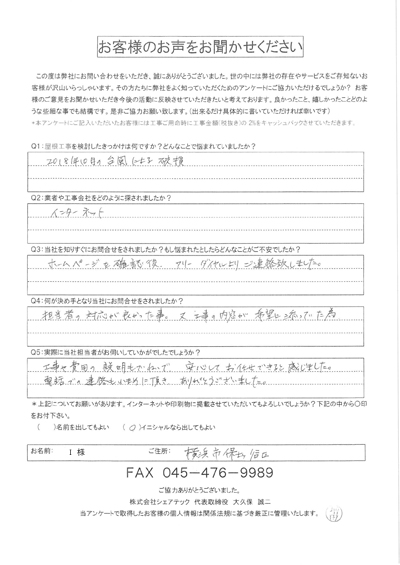 お客様のお声をお聞かせください
この度は弊社にお問い合わせをいただき、誠にありがとうございました。世の中には弊社の存在やサービスをご存知ないお
客様が沢山いらっしゃいます。その方たちに弊社をよく知っていただくためのアンケートにご協力いただけるでしょうか？ お客
様のご意見をお聞かせいただき今後の活動に反映させていただきたいと考えております。良かったこと、嬉しかったことどのよ
うな些細な事でも結構です。是非ご協力お願い致します。（出来るだけ具体的に書いていただければ幸いです）
*本アンケートにご記入いただいたお客様には工事ご契約時に工事金額(税抜き)の2%をキャッシュバックさせていただきます。
Q1:屋根工事を検討したきっかけは何ですか？どんなことで悩まれていましたか？
2018年10月の台風による破損
Q2:業者や工事会社をどのように探されましたか？
インターネット
Q3:当社を知りすぐにお問合せをされましたか？もし悩まれたとしたらどんなことがご不安でしたか？
ホームページを確認後、フリーダイヤルよりご連絡致しました。
Q4:何が決め手となり当社にお問合せをされましたか？
担当者の対応が良かった事。又工事の内容が希望に添っていた為
Q5:実際に当社担当者がお伺いしていかがでしたでしょうか？
工事や費用の説明もていねいで 安心してお任せできると感じました。
電話での連絡もこまめに頂き ありがとうございました。
*上記についてお願いがあります。インターネットや印刷物に掲載させていただいてもよろしいでしょうか？下記の中から〇印
をお付下さい。
（ ）名前を出してもよい （〇）イニシャルなら出してもよい
お名前: I 様 ご住所: 横浜市保土ケ谷区
FAX 045-476-9989
ご協力ありがとうございました。
株式会社シェアテック 代表取締役 大久保 誠二
当アンケートで取得したお客様の個人情報は関係法規に基づき厳正に管理いたします。